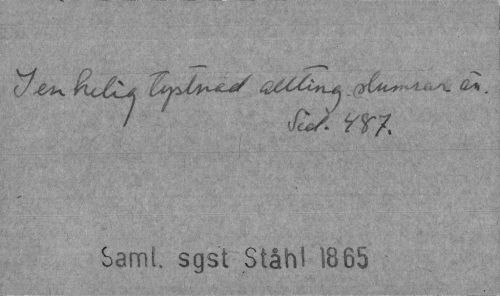 I en helig tystnad allting slumrar är.
Sid. 487.
Saml. sgst Ståhl 1865